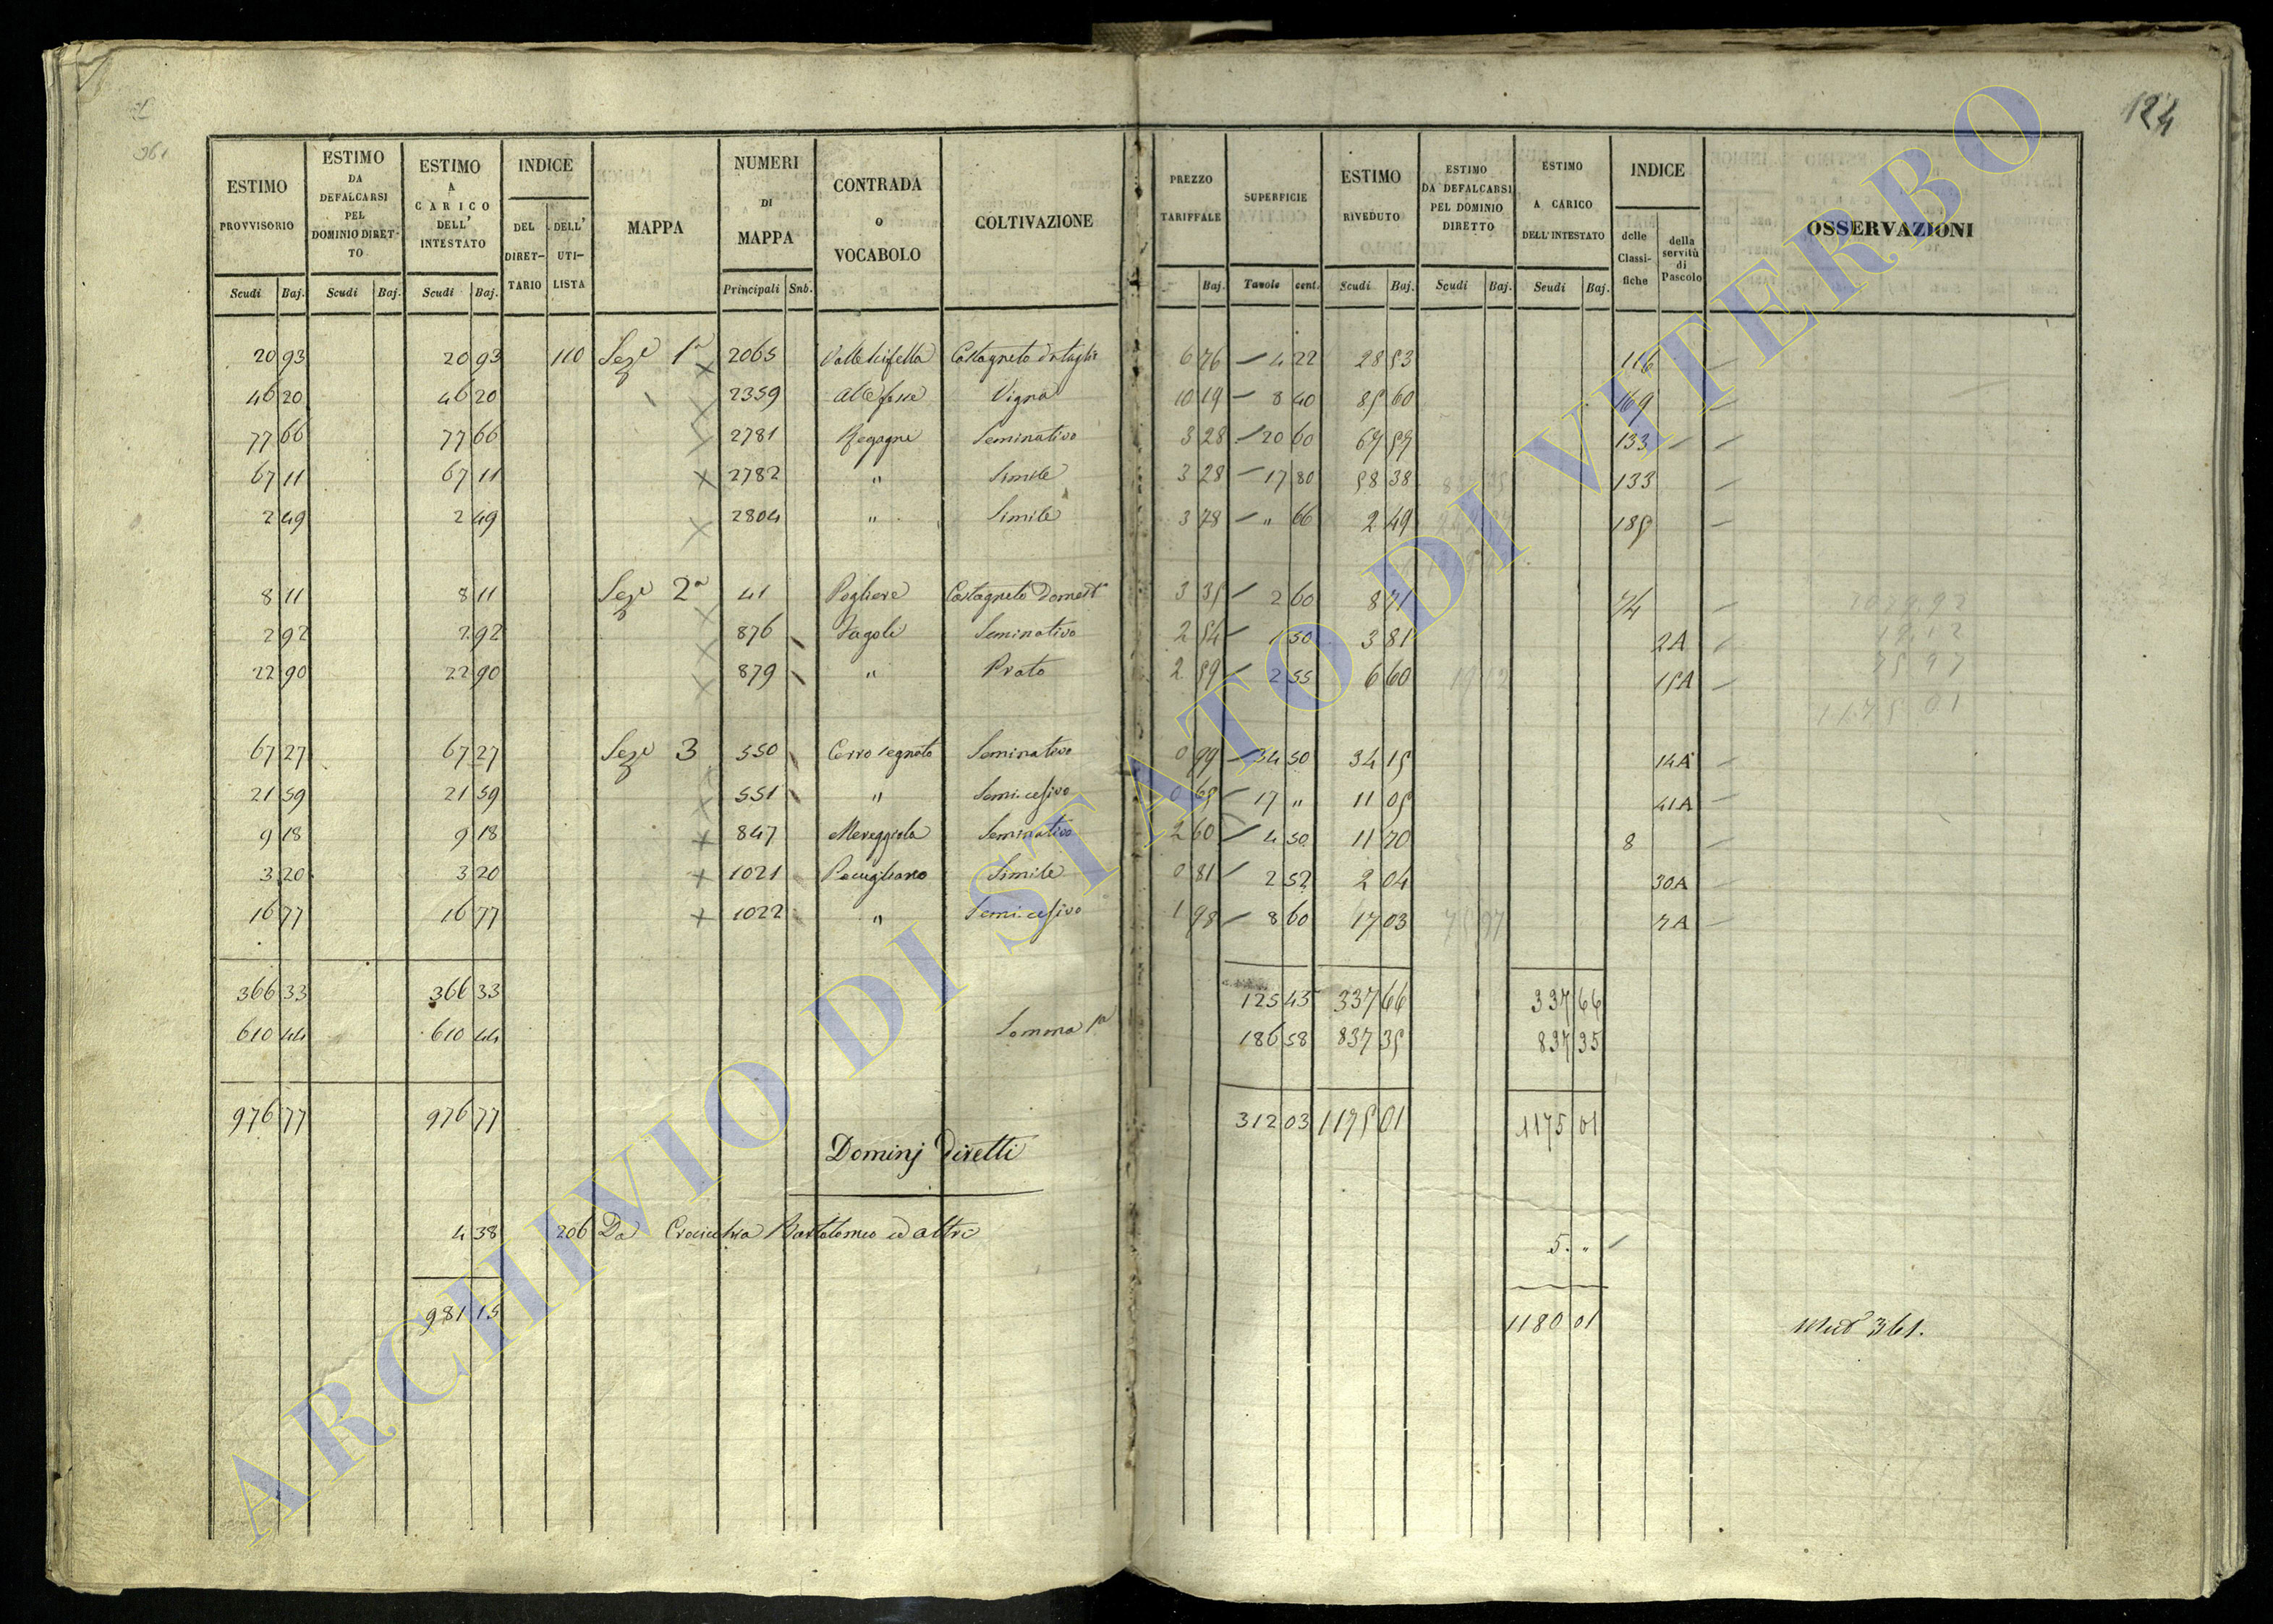 124
361
ESTIMO PROVVISORIO | ESTIMO DA DEFALCARSI PEL DOMINIO DIRETTO | ESTIMO A CARICO DELL' INTESTATO | INDICE DEL DIRETTARIO | DELL' UTILISTA | MAPPA | NUMERI DI MAPPA | CONTRADA o VOCABOLO | COLTIVAZIONE | PREZZO TARIFFALE | SUPERFICIE | ESTIMO RIVEDUTO | ESTIMO DA DEFALCARSI PEL DOMINIO DIRETTO | ESTIMO A CARICO DELL'INTESTATO | INDICE delle Classifiche | della servitù di Pascolo | OSSERVAZIONI
Scudi Baj. | Scudi Baj. | Scudi Baj. | Principali Snb. | Baj. | Tavole cent. | Scudi Baj. | Scudi Baj. | Scudi Baj.
20 93 | 20 93 | 110 | Seze 1a | 2065 | Castagneto | 6 76 | 4 22 | 28 53 | 116
46 20 | 46 20 | 2359 | Vigna | 10 19 | 8 40 | 85 60 | 169
77 66 | 77 66 | 2781 | Regagne | Seminativo | 3 28 | 20 60 | 67 57 | 133
67 11 | 67 11 | 2782 | " | Simile | 3 28 | 17 80 | 58 38 | 133
2 49 | 2 49 | 2804 | " | Simile | 3 78 | " 66 | 2 49 | 185
8 11 | 8 11 | Seze 2a | 41 | Pogliere | Castagneto Domest° | 3 35 | 2 60 | 8 71 | 74
2 92 | 2 92 | 876 | Fagole | Seminativo | 2 54 | 1 50 | 3 81 | 2A
22 90 | 22 90 | 879 | " | Prato | 2 59 | 2 55 | 6 60 | 15A
67 27 | 67 27 | Seze 3 | 550 | Cerro segnato | Seminativo | 0 99 | 34 50 | 34 15 | 14A
21 59 | 21 59 | 551 | " | Semi.cesivo | 0 65 | 17 " | 11 05 | 41A
9 18 | 9 18 | 847 | Mereggiola | Seminativo | 2 60 | 4 50 | 11 70 | 8
3 20 | 3 20 | 1021 | Pacugliano | Simile | 0 81 | 2 52 | 2 04 | 30A
16 77 | 16 77 | 1022 | " | Semi.cesivo | 1 98 | 8 60 | 17 03 | 7A
366 33 | 366 33 | 125 45 | 337 66 | 337 66
610 44 | 610 44 | Somma 1a | 186 58 | 837 35 | 837 35
976 77 | 976 77 | 312 03 | 1175 01 | 1175 01
Dominj diretti
4 38 | 206 | Da Crocicchia Bartolomeo ed altri | 5. "
981 15 | 1180 01 | 361.
ARCHIVIO DI STATO DI VITERBO